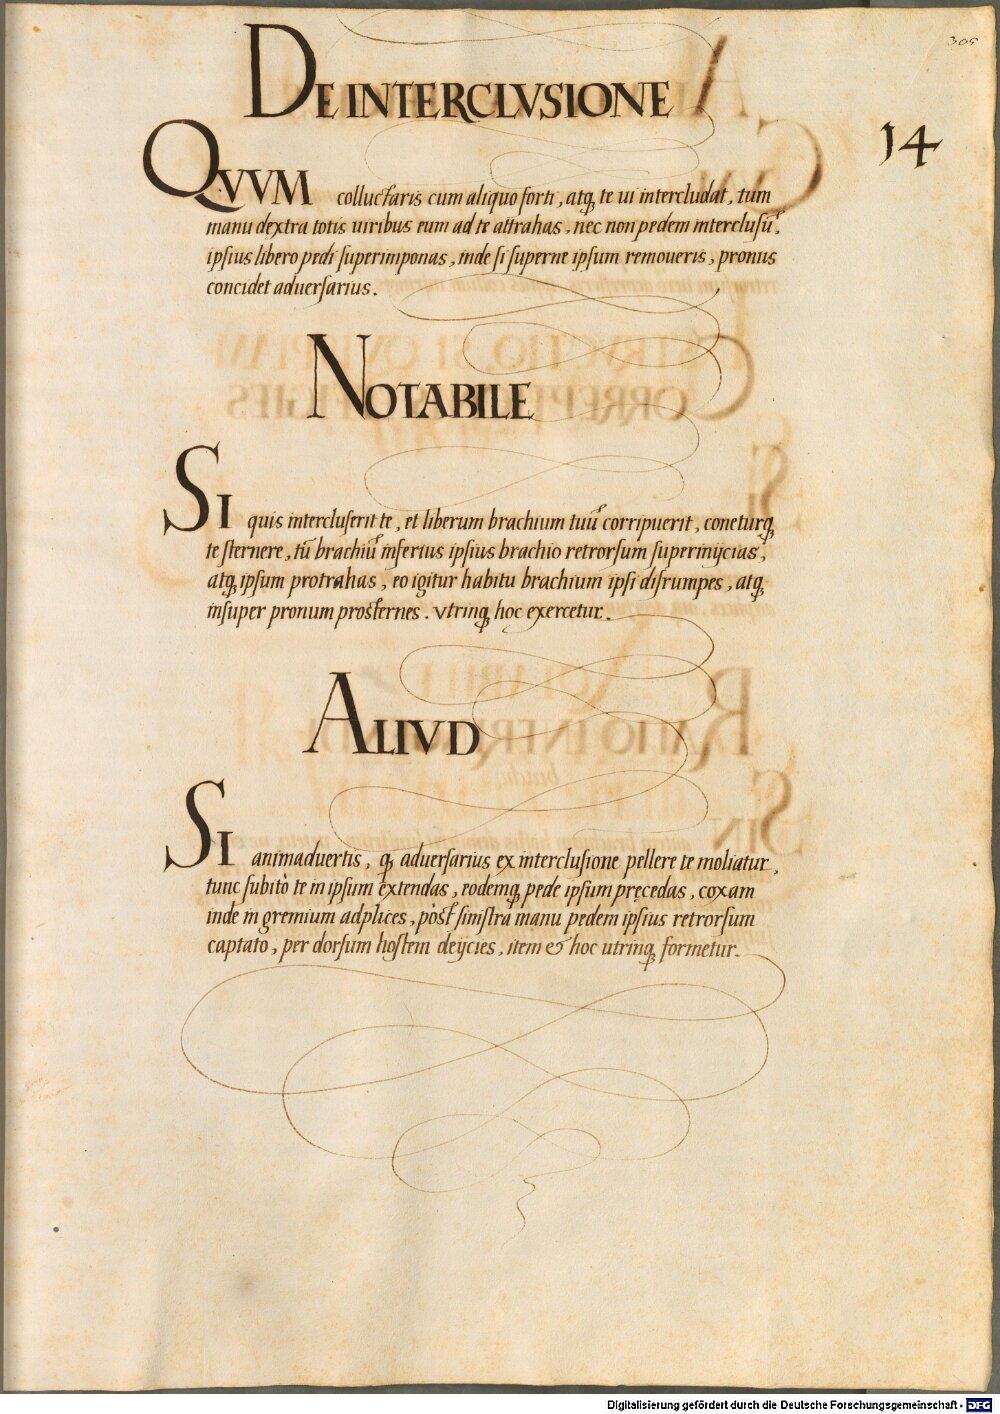 305
DE INTERCLVSIONE
14
QVVM colluctaris cum aliquo forti, atq; te ui intercludat, tum
manu dextra totis uiribus eum ad te attrahas, nec non pedem interclusū,
ipsius libero pedi superimponas, inde si superne ipsum remoueris, pronus
concidet aduersarius.
NOTABILE
SI quis intercluserit te, et liberum brachium tuū corripuerit, coneturq;
te sternere, tū brachiū inferius ipsius brachio retrorsum superinijcias,
atq; ipsum protrahas, eo igitur habitu brachium ipsi disrumpes, atq;
insuper pronum prosternes. vtrinq; hoc exercetur.
ALIVD
SI animaduertis, q; aduersarius ex interclusione pellere te moliatur,
tunc subitò te in ipsum extendas, eodemq; pede ipsum pręcedas, coxam
inde in gremium adplices, pòst sinistra manu pedem ipsius retrorsum
captato, per dorsum hostem deijcies, item & hoc utrinq; formetur.
Digitalisierung gefördert durch die Deutsche Forschungsgemeinschaft - DFG